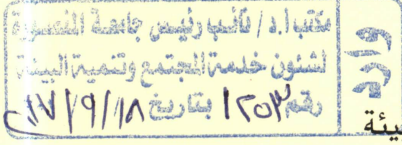 مكتب ا.د / نائب رئيس جامعة المنصورة
لشئون خدمة المجتمع وتنمية البيئة
رقم ١٢٥٣ بتاريخ ١٧/٩/١٨
وارد
يئة